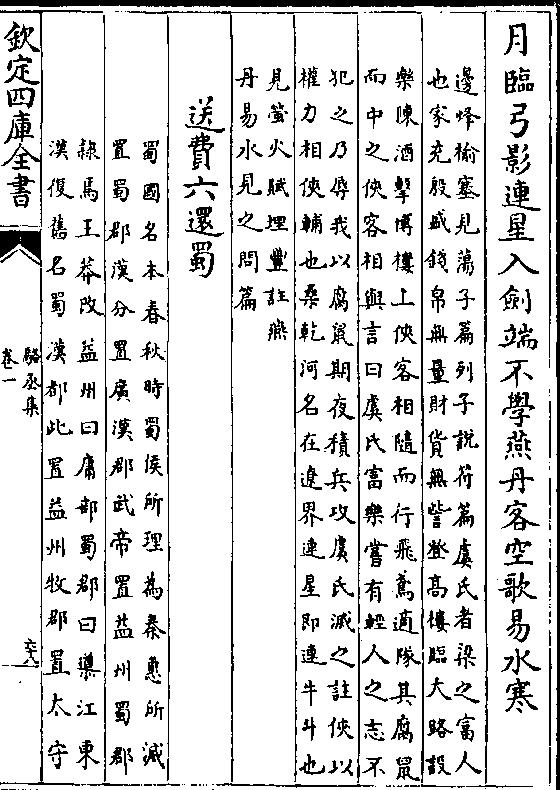 月臨弓影連星入劍端不學燕丹客空歌易水寒
邊烽榆塞見蕩子篇列子說符篇虞氏者梁之富人
也家充殷盛錢帛無量財貨無訾登高樓臨大路設
樂陳酒擊博樓上俠客相隨而行飛鳶適隊其腐鼠
而中之俠客相與言曰虞氏富樂嘗有輕人之志不
犯之乃辱我以腐鼠期夜積兵攻虞氏滅之註俠以
權力相俠輔也桑乾河名在遼界連星即連牛斗也
見螢火賦埋豐註燕
丹易水見之問篇
送費六還蜀
蜀國名本春秋時蜀侯所理為秦惠所滅
置蜀郡漢分置廣漢郡武帝置益州蜀郡
隸焉王莽改益州曰庸部蜀郡曰導江東
漢復舊名蜀漢都此置益州牧郡置太守
欽定四庫全書
駱丞集
卷一